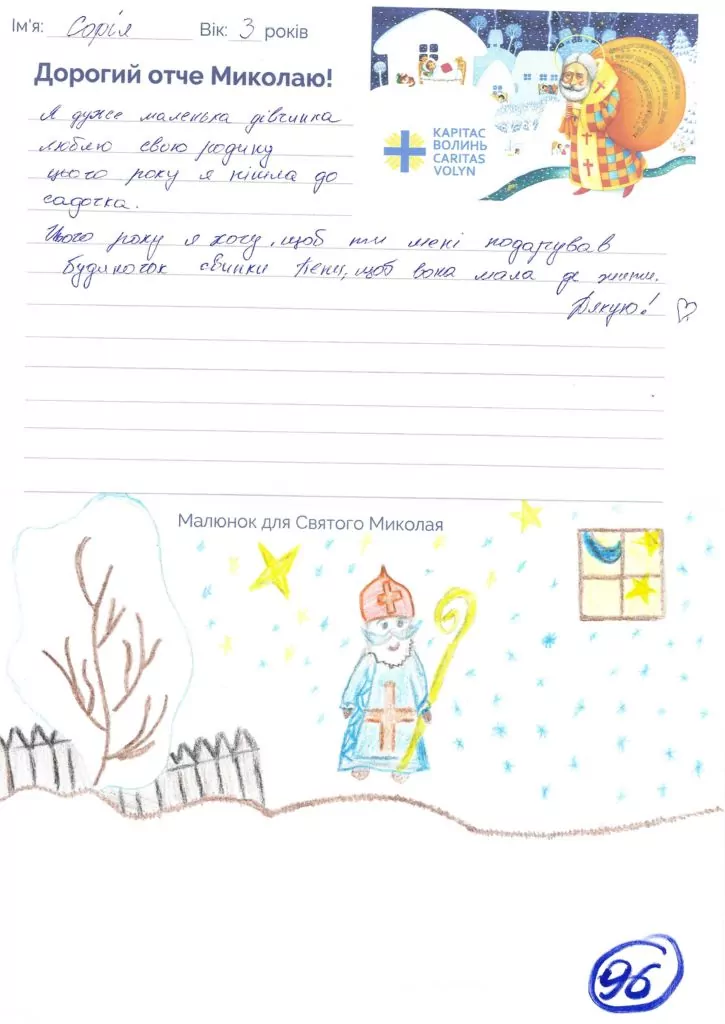 Ім'я: Софія Вік: 3 років
Дорогий отче Миколаю!
КАРІТАС
ВОЛИНЬ
CARITAS
VOLYN
Я дуже маленька дівчинка
люблю свою родину
цього року я пішла до
садочка.
Цього року я хочу, щоб ти мені подарував
будиночок свинки Пепи, щоб вона мала де жити.
Дякую!
Малюнок для Святого Миколая
96